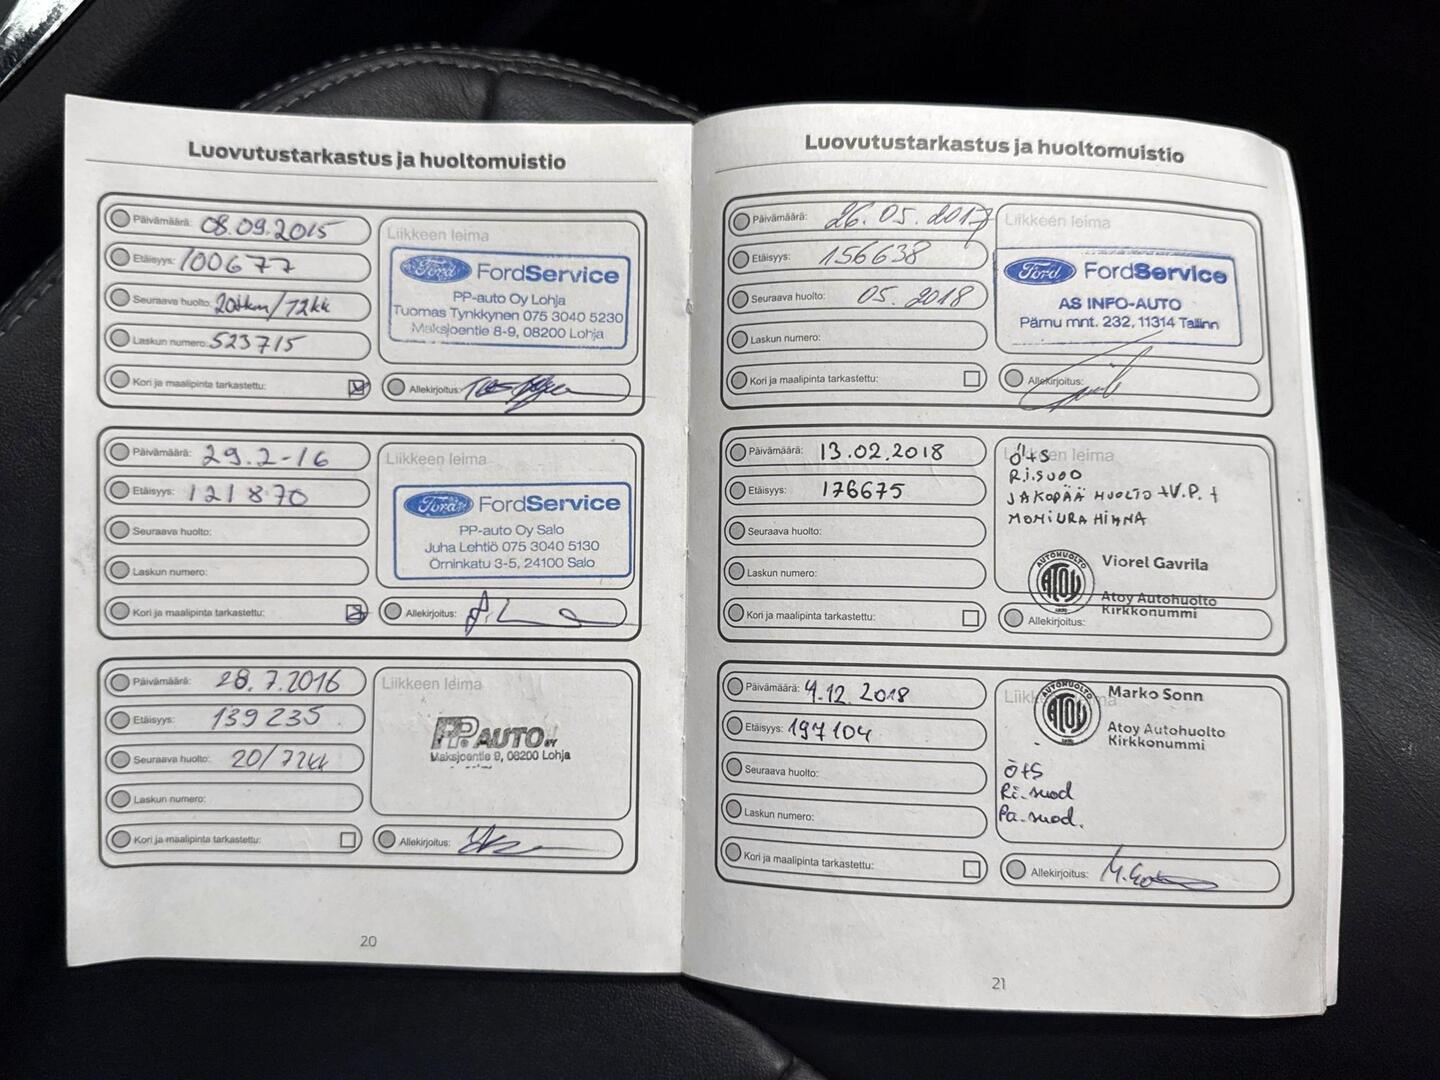 Luovutustarkastus ja huoltomuistio
Päivämäärä: 08.09.2015
Etäisyys: 100677
Seuraava huolto: 20tkm/12kk
Laskun numero: 523715
Kori ja maalipinta tarkastettu:
Liikkeen leima
Ford FordService
PP-auto Oy Lohja
Tuomas Tynkkynen 075 3040 5230
Maksjoentie 8-9, 08200 Lohja
Allekirjoitus:
Päivämäärä: 29.2-16
Etäisyys: 121870
Seuraava huolto:
Laskun numero:
Kori ja maalipinta tarkastettu:
Liikkeen leima
Ford FordService
PP-auto Oy Salo
Juha Lehtiö 075 3040 5130
Örninkatu 3-5, 24100 Salo
Allekirjoitus:
Päivämäärä: 28.7.2016
Etäisyys: 139235
Seuraava huolto: 20/12kk
Laskun numero:
Kori ja maalipinta tarkastettu:
Liikkeen leima
PP AUTO OY
Maksjoentie 9, 08200 Lohja
Allekirjoitus:
20
Luovutustarkastus ja huoltomuistio
Päivämäärä: 26.05.2017
Etäisyys: 156638
Seuraava huolto: 05.2018
Laskun numero:
Kori ja maalipinta tarkastettu:
Liikkeen leima
Ford FordService
AS INFO-AUTO
Pärnu mnt. 232, 11314 Tallinn
Allekirjoitus:
Päivämäärä: 13.02.2018
Etäisyys: 176675
Seuraava huolto:
Laskun numero:
Kori ja maalipinta tarkastettu:
Liikkeen leima
Ö+S
R.i.SUOD
JAKOPÄÄ HUOLTO +V.P. +
MONIURAHIHNA
AUTOHUOLTO
ATOY
Viorel Gavrila
Atoy Autohuolto
Kirkkonummi
Allekirjoitus:
Päivämäärä: 4.12.2018
Etäisyys: 197104
Seuraava huolto:
Laskun numero:
Kori ja maalipinta tarkastettu:
Liikkeen leima
AUTOHUOLTO
ATOY
Marko Sonn
Atoy Autohuolto
Kirkkonummi
Ö+S
Ri.suod
Pa.suod.
Allekirjoitus:
21